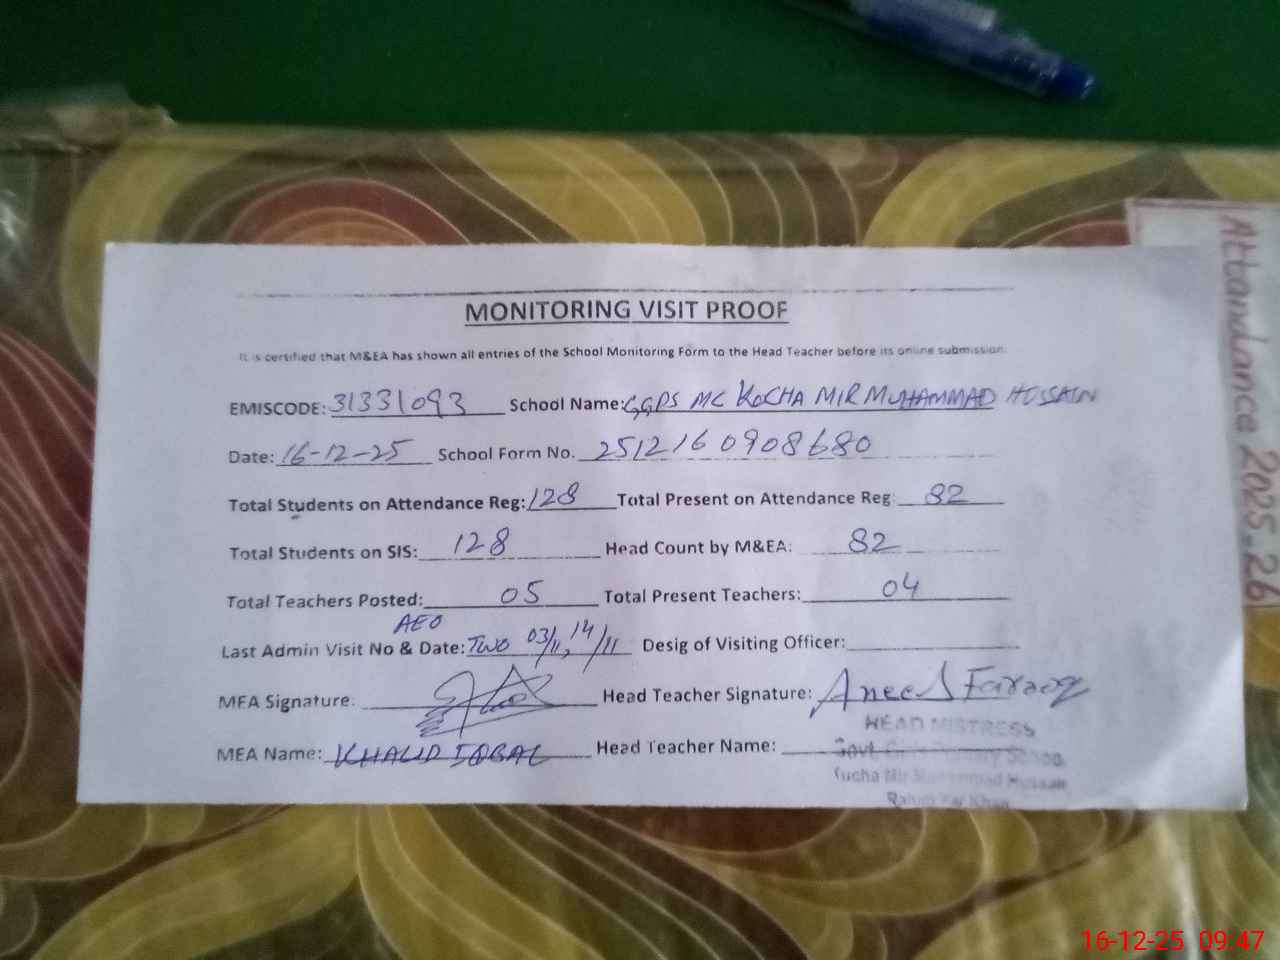 MONITORING VISIT PROOF
It is certified that M&EA has shown all entries of the School Monitoring Form to the Head Teacher before its online submission.
EMISCODE: 31331093 School Name: GGPS MC KOCHA MIR MUHAMMAD HUSSAIN
Date: 16-12-25 School Form No. 2512160908680
Total Students on Attendance Reg: 128 Total Present on Attendance Reg: 82
Total Students on SIS: 128 Head Count by M&EA: 82
Total Teachers Posted: 05 Total Present Teachers: 04
AEO
Last Admin Visit No & Date: TWO 03/11, 14/11 Desig of Visiting Officer:
MEA Signature: Head Teacher Signature: Aneed Farooq
HEAD MISTRESS
MEA Name: KHALID IQBAL Head Teacher Name:
Govt. Girls Primary School
Kucha Mir Muhammad Hussain
Rahim Yar Khan
Attandance 2025-26
16-12-25 09:47